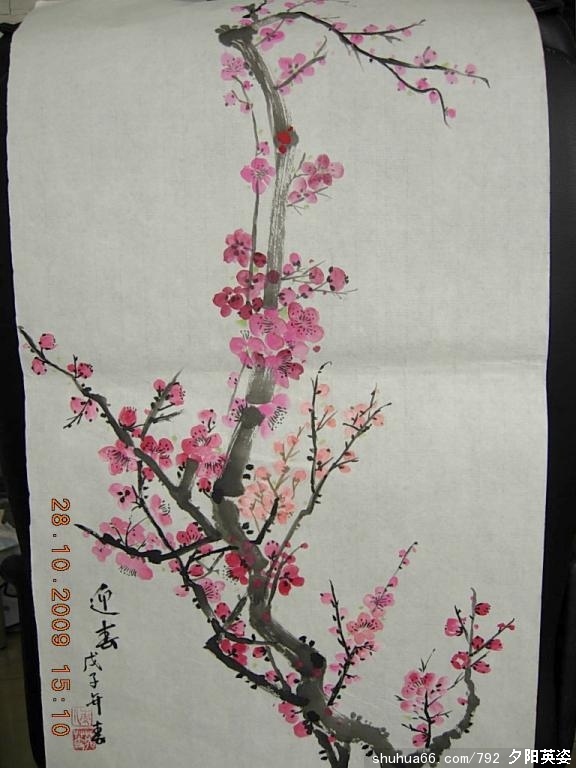 迎春
戊子年春
28.10.2009 15:10
shuhua66.com/792 夕阳英姿